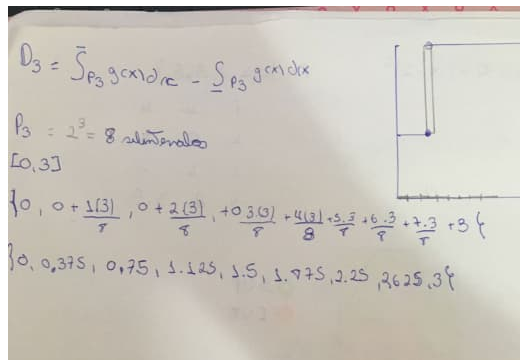 D₃ = ∫̄_P₃ g(x)dx - ∫̲_P₃ g(x)dx
P₃ = 2³ = 8 subintervalos
[0,3]
{0, 0 + 1(3)/8, 0 + 2(3)/8, +0 3(3)/8 + 4(3)/8 + 5.3/8 + 6.3/8 + 7.3/8 + 3}
{0, 0,375, 0,75, 1.125, 1.5, 1.875, 2.25, 2,625, 3}